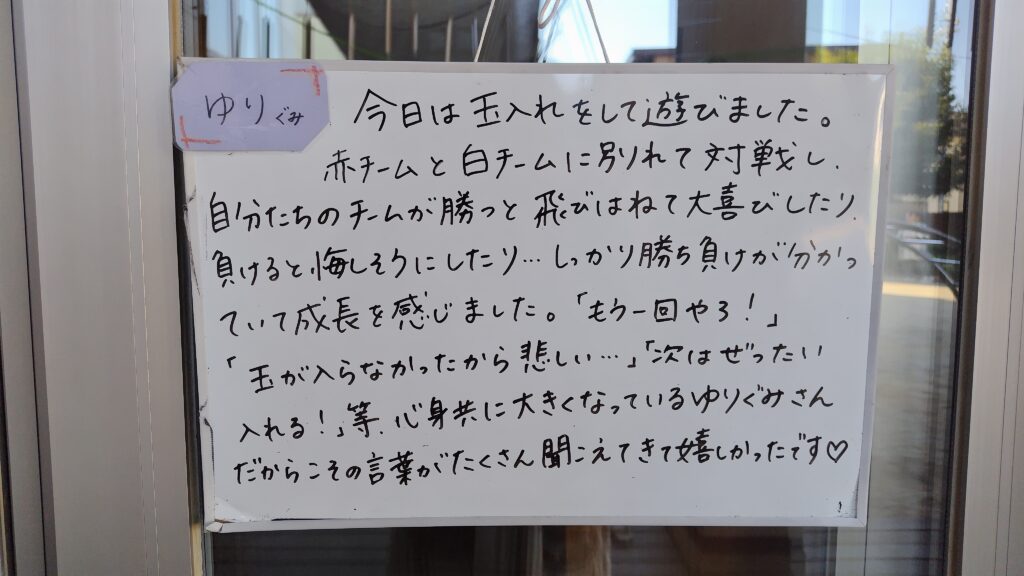 ゆりぐみ
今日は玉入れをして遊びました。
赤チームと白チームに別れて対戦し、
自分たちのチームが勝つと飛びはねて大喜びしたり、
負けると悔しそうにしたり…しっかり勝ち負けが分かっ
ていて成長を感じました。「もう一回やろ！」
「玉が入らなかったから悲しい…」「次はぜったい
入れる！」等、心身共に大きくなっているゆりぐみさん
だからこその言葉がたくさん聞こえてきて嬉しかったです♡